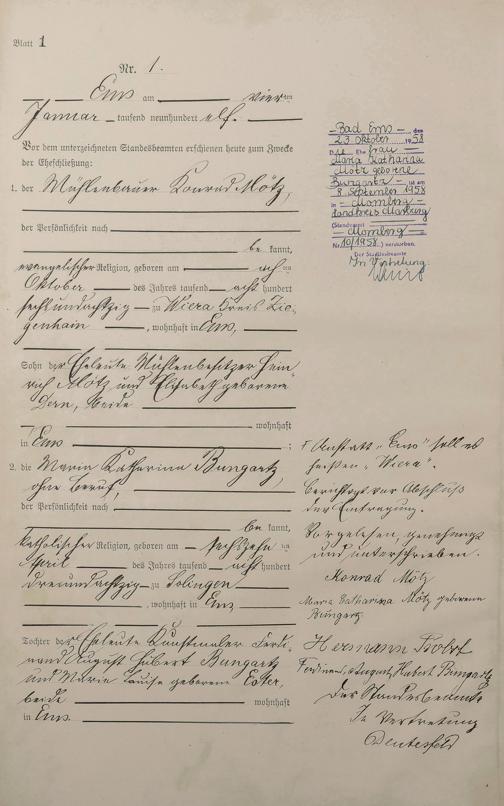 Blatt 1
Nr. 1.
Ems am vierten
Januar tausend neunhundert elf.
Vor dem unterzeichneten Standesbeamten erschienen heute zum Zwecke
der Eheschließung:
1. der Mühlenbauer Konrad Mötz,
der Persönlichkeit nach
be kannt,
evangelischer Religion, geboren am ach ten
Oktober des Jahres tausend acht hundert
sechsundachtzig zu Wiera Kreis Zie-
genhain, wohnhaft in Ems,
Sohn der Eheleute Mühlenbesitzer Hein-
rich Mötz und Elisabeth geborene
Dorn, beide
wohnhaft
in Ems ;
2. die Maria Katharina Bungartz,
ohne Beruf,
der Persönlichkeit nach
be kannt,
katholischer Religion, geboren am sechszehn ten
April des Jahres tausend acht hundert
dreiundachtzig zu Solingen
, wohnhaft in Ems
Tochter der Eheleute Kunstmaler Ferdi-
nand August Hubert Bungartz
und Maria Luise geborene
beide wohnhaft
in Ems
Bad Ems den
23. Oktober 1958
Die Ehefrau
Maria Katharina
Mötz geborene
Bungartz ist am
8. September 1958
in Momberg
Landkreis Marburg
(Standesamt
Momberg
Nr. 10/1958) verstorben.
Der Standesbeamte
In Vertretung
Anstatt "Ems" soll es
heißen "Wiera".
Berichtigt vor Abschluß
der Eintragung.
Vorgelesen, genehmigt
und unterschrieben.
Konrad Mötz
Maria Catharina Mötz geborene
Bungartz
Hermann
Ferdinand, August, Hubert Bungartz
Der Standesbeamte
In Vertretung